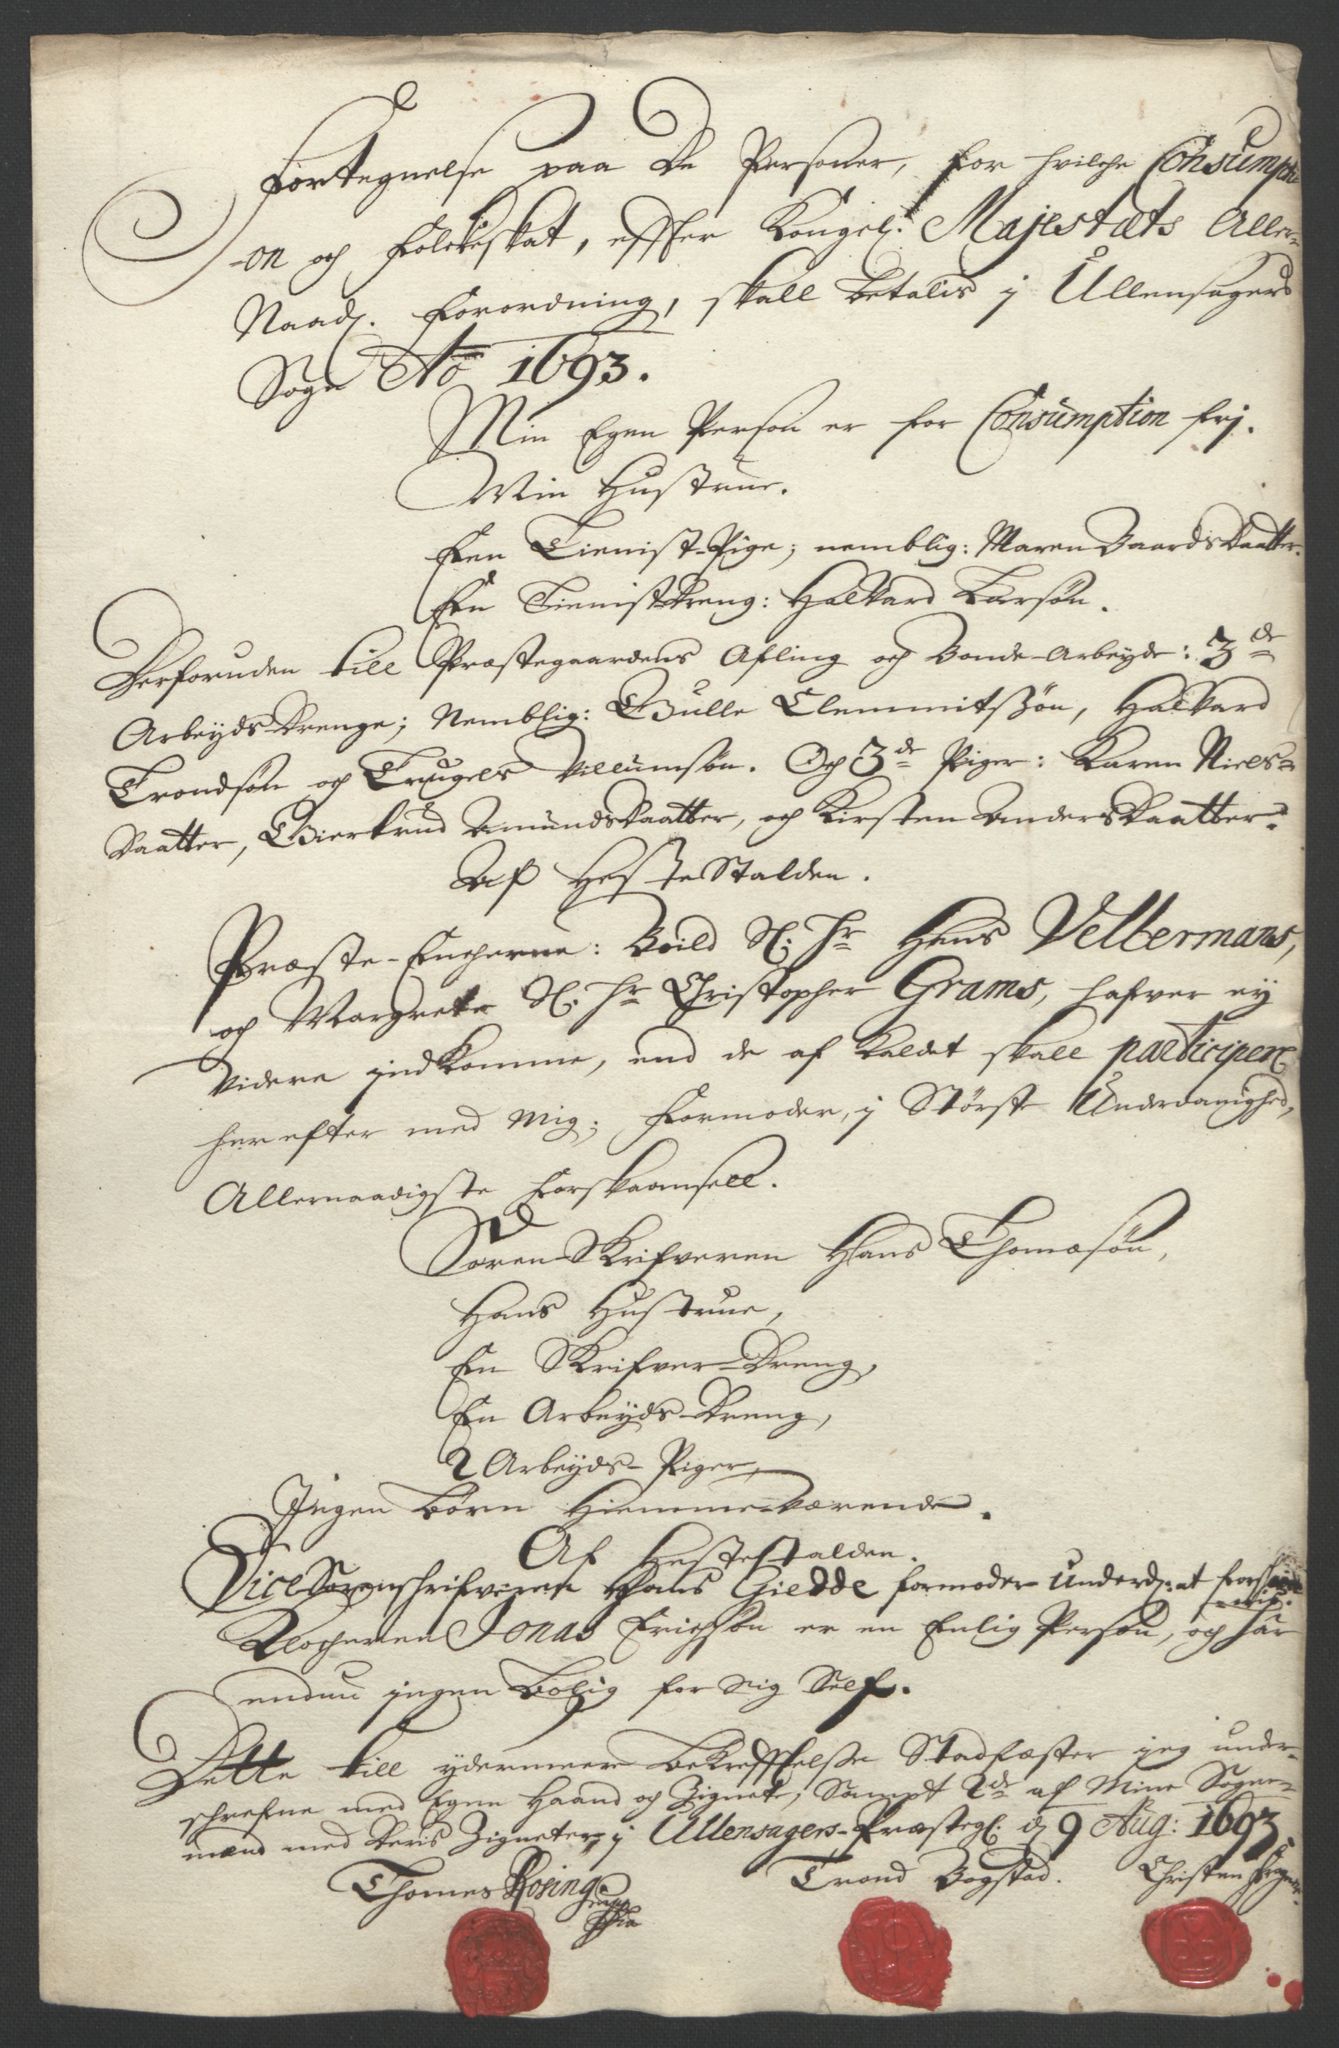 Fortegnelse paa De Personer, for hvilche Consumpti
-on och Folcheskat, effter Kongel: Majestæts Aller-
Naad: Forordning, skall betalis j Ullensagers
Sogn Ao 1693.
Min Egen Person er for Consumption frj.
Min Hustrue.
Een Tienist-Pige; nemblig: Maren Baards Daatter.
En Tienistdreng: Halvard Larsøn.
Derforuden till Præstegaardens Afling och Bonde-Arbeyde: 3de
Arbeyds-Drenge; Nemblig: Gulle Clemmitsøn, Halvard
Trondsøn och Trugels Villumsøn. Och 3de Piger: Karen Niels-
Daatter, Giertrud Amunds Daatter, och Kirsten Anders Daatter.
Af HesteStalden.
Præste-Encherne: Boild Sl: Hr Hans Velbermans,
och Margrete Sl: Hr Christopher Grams, hafver ey
videre jndkomme, end de af Kaldet skall participere
her efter med mig; Formoder, j Største Underdanighed,
Allernaadigste Forskaansell.
Soren-Skrifveren Hans Thomæsøn,
Hans Hustrue,
En Skrifver-Dreng,
En Arbeyds-Dreng,
2 Arbeyds-Piger,
Jngen børn Hiemmeværende.
Af Hestestalden.
Vice Sorenschrifveren Hans Giedde formoder Underd: at
Klocheren Jonas Erichsøn er en Enlig Person, och har
endnu jngen bolig for Sig Self.
Dette till ydermeere bekrefftelse Stadfæster jeg under-
schrefne med Egen Haand och Zignete, Sampt 2de af Mine Sogne-
mænd med deris Zigneter j Ullensagers-Præstegl: d 9 Aug: 1693
Thomes Rosing Trond Bogstad. Christen